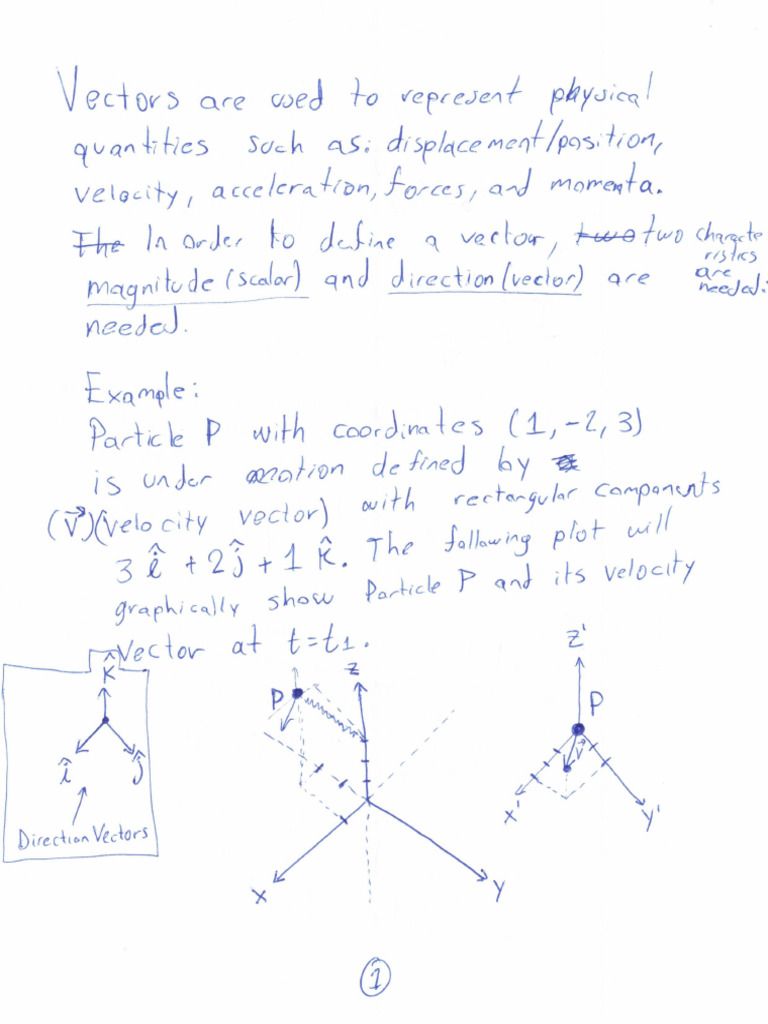 Vectors are used to represent physical
quantities such as: displacement/position,
velocity, acceleration, forces, and momenta.
The In order to define a vector, two two characte
ristics
are
needed:
magnitude (scalar) and direction (vector) are
needed.
Example:
Particle P with coordinates (1, -2, 3)
is under motion defined by
(v⃗)(velocity vector) with rectangular components
3 î + 2 ĵ + 1 k̂. The following plot will
graphically show Particle P and its velocity
vector at t = t1.
k̂
î
ĵ
Direction Vectors
P
z
x
y
z'
P
v⃗
x'
y'
1